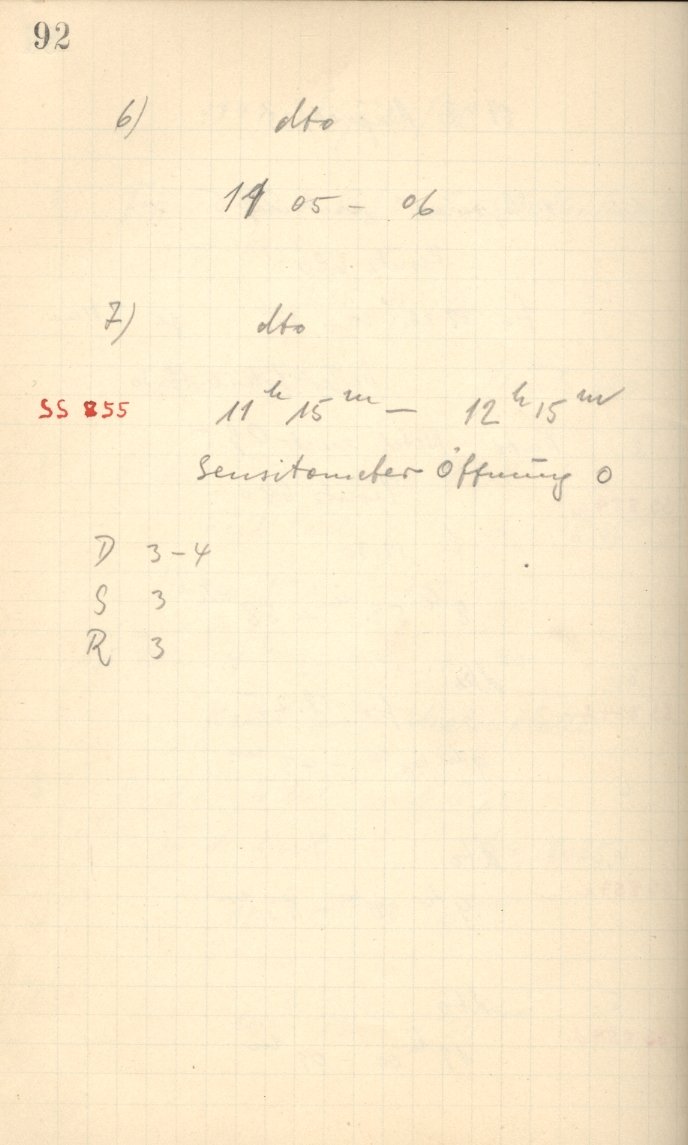 92
6) dto
11 05 – 06
7) dto
SS 855 11ʰ 15ᵐ – 12ʰ 15ᵐ
Sensitometer Öffnung 0
D 3-4
S 3
R 3